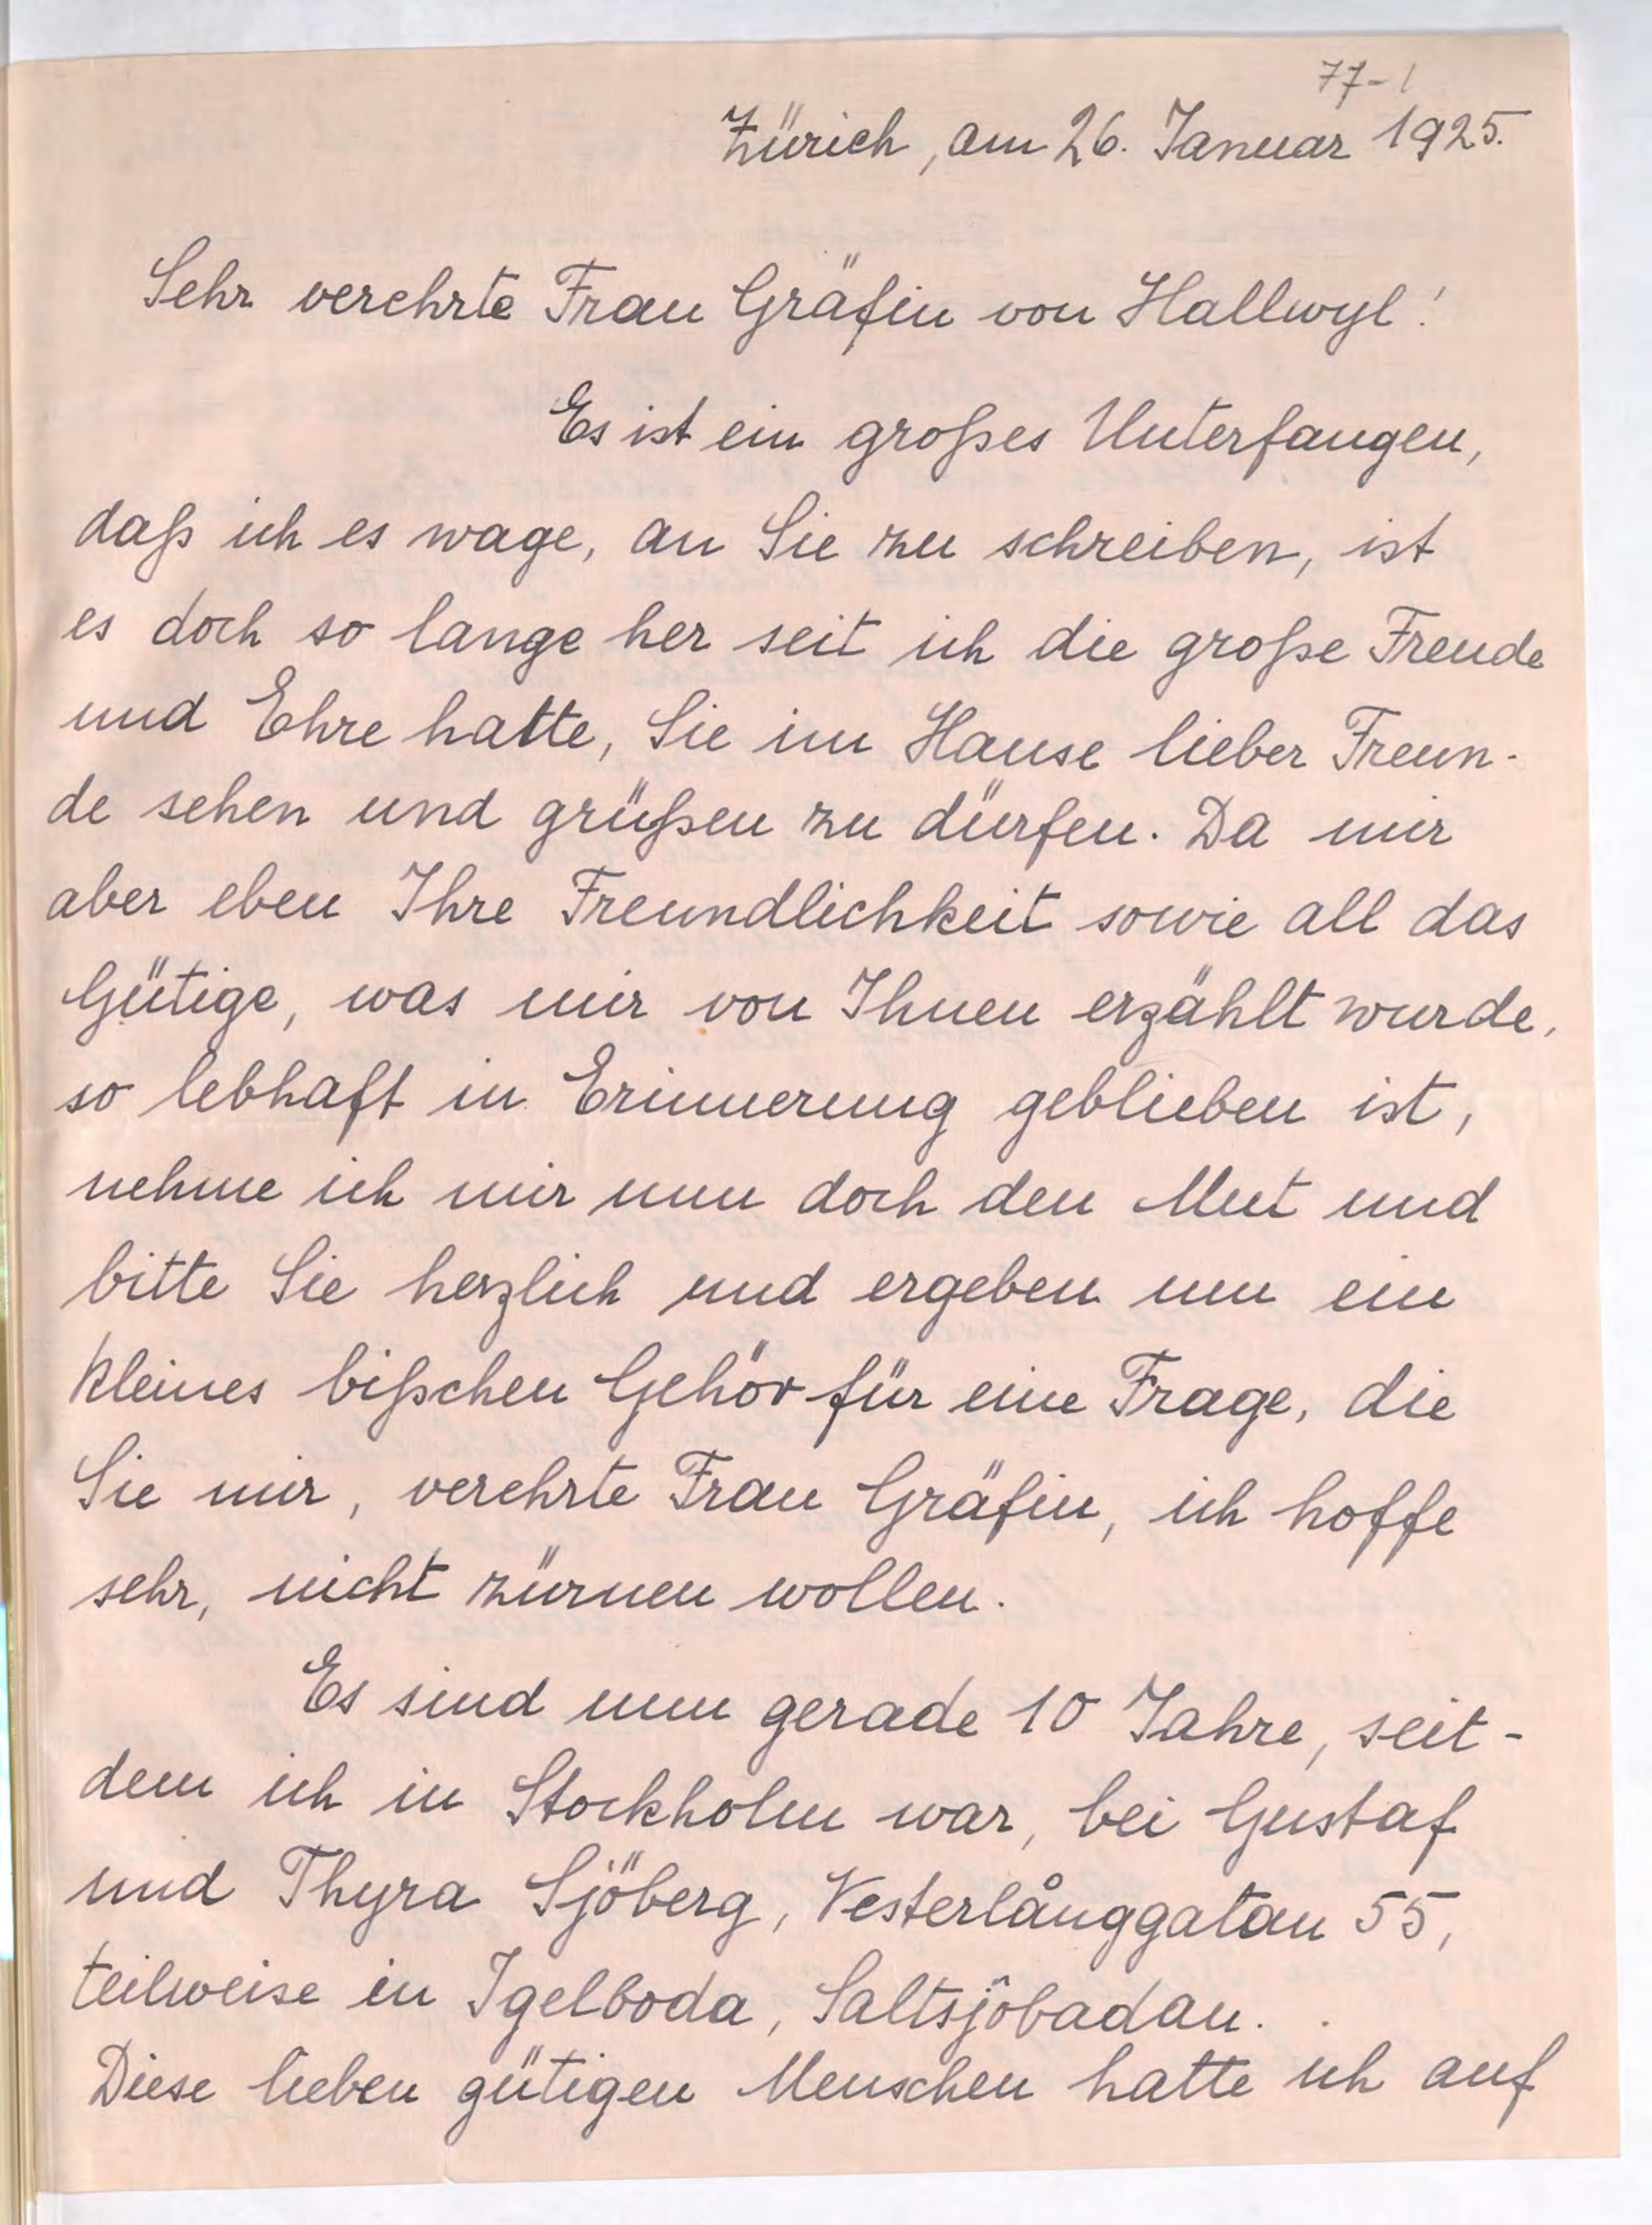 77-1
Zürich, am 26. Januar 1925.
Sehr verehrte Frau Gräfin von Hallwyl!
Es ist ein großes Unterfangen,
daß ich es wage, an Sie zu schreiben, ist
es doch so lange her seit ich die große Freude
und Ehre hatte, Sie im Hause lieber Freun-
de sehen und grüßen zu dürfen. Da mir
aber eben Ihre Freundlichkeit sowie all das
Gütige, was mir von Ihnen erzählt wurde,
so lebhaft in Erinnerung geblieben ist,
nehme ich mir nun doch den Mut und
bitte Sie herzlich und ergeben um ein
kleines bißchen Gehör für eine Frage, die
Sie mir, verehrte Frau Gräfin, ich hoffe
sehr, nicht zürnen wollen.
Es sind nun gerade 10 Jahre, seit-
dem ich in Stockholm war, bei Gustaf
und Thyra Sjöberg, Vesterlånggatan 55,
teilweise in Igelboda, Saltsjöbadan.
Diese lieben gütigen Menschen hatte ich auf